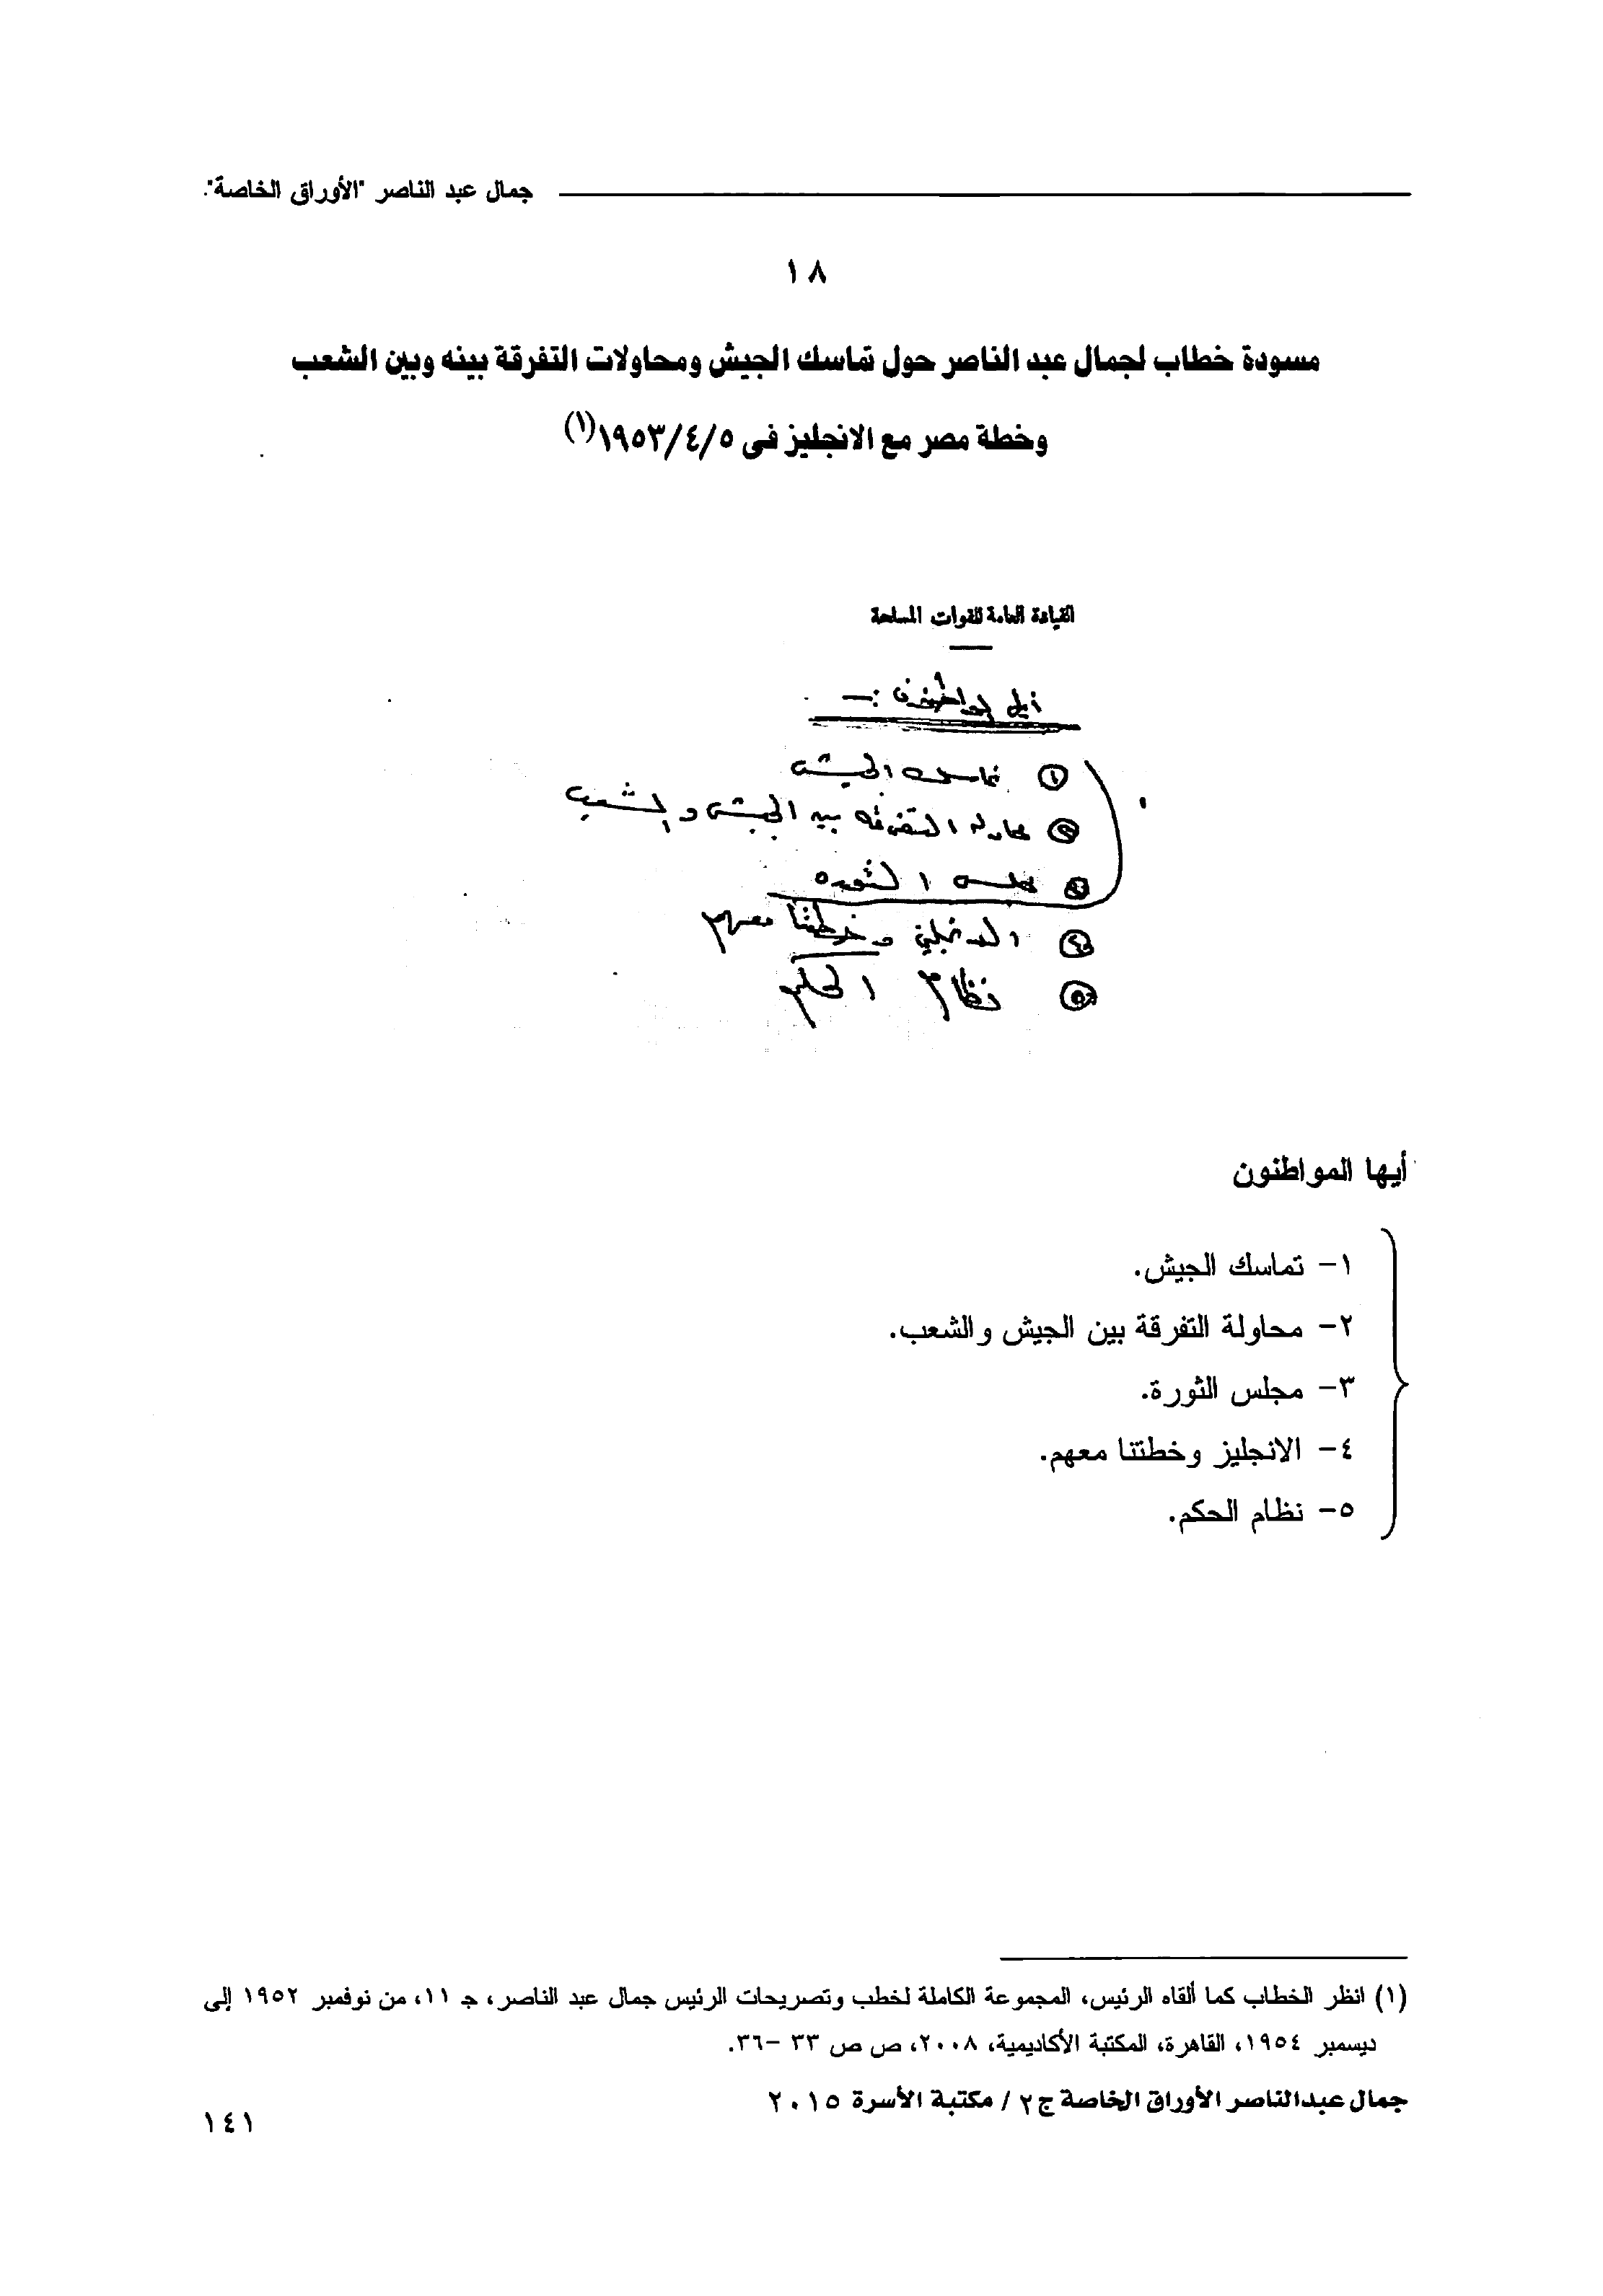 جمال عبد الناصر "الأوراق الخاصة".
١٨
مسودة خطاب لجمال عبد الناصر حول تماسك الجيش ومحاولات التفرقة بينه وبين الشعب
وخطة مصر مع الانجليز فى ١٩٥٣/٤/٥(١)
القيادة العامة للقوات المسلحة
أيها المواطنون :-
(١) تماسك الجيش
(٢) محاولة التفرقه بين الجيش والشعب
(٣) مجلس الثوره
(٤) الانجليز وخطتنا معهم
(٥) نظام الحكم
أيها المواطنون
١- تماسك الجيش.
٢- محاولة التفرقة بين الجيش والشعب.
٣- مجلس الثورة.
٤- الانجليز وخطتنا معهم.
٥- نظام الحكم.
(١) انظر الخطاب كما ألقاه الرئيس، المجموعة الكاملة لخطب وتصريحات الرئيس جمال عبد الناصر، جـ ١١، من نوفمبر ١٩٥٢ إلى
ديسمبر ١٩٥٤، القاهرة، المكتبة الأكاديمية، ٢٠٠٨، ص ص ٣٣ -٣٦.
جمال عبدالناصر الأوراق الخاصة ج٢ / مكتبة الأسرة ٢٠١٥
١٤١